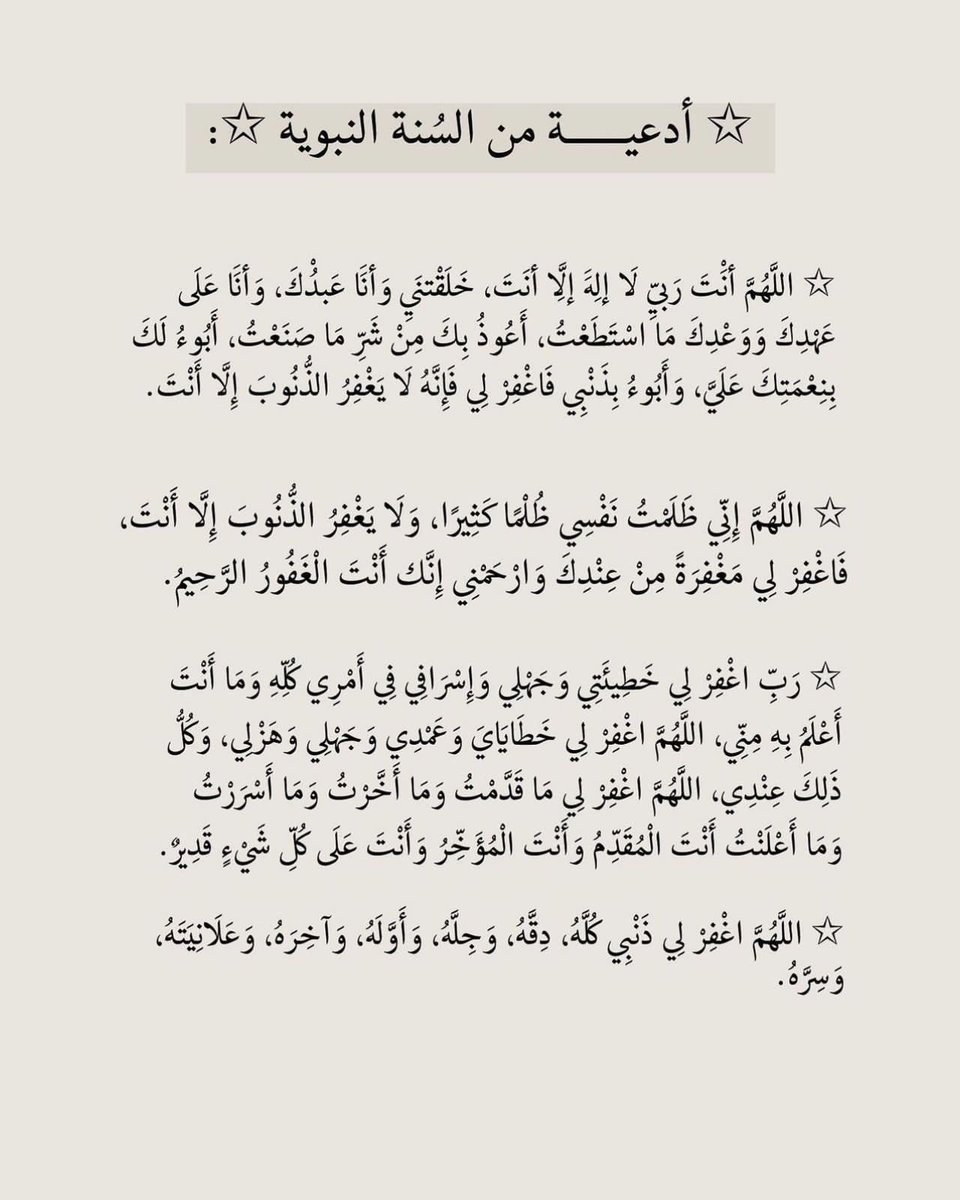 ☆ أدعيـــــة من السُنة النبوية ☆:
☆ اللَّهُمَّ أنْتَ رَبيِّ لَا إلِهَ إلَِّا أنَتَ، خَلَقْتنَيِ وَأنَا عَبدُْكَ، وَأنَا عَلَى
عَهْدِكَ وَوَعْدِكَ مَا اسْتَطَعْتُ، أَعُوذُ بِكَ مِنْ شَرِّ مَا صَنَعْتُ، أَبُوءُ لَكَ
بِنِعْمَتِكَ عَلَيَّ، وَأَبُوءُ بِذَنْبِي فَاغْفِرْ لِي فَإِنَّهُ لَا يَغْفِرُ الذُّنُوبَ إِلَّا أَنْتَ.
☆ اللَّهُمَّ إِنِّي ظَلَمْتُ نَفْسِي ظُلْمًا كَثِيرًا، وَلَا يَغْفِرُ الذُّنُوبَ إِلَّا أَنْتَ،
فَاغْفِرْ لِي مَغْفِرَةً مِنْ عِنْدِكَ وَارْحَمْنِي إِنَّك أَنْتَ الْغَفُورُ الرَّحِيمُ.
☆ رَبِّ اغْفِرْ لِي خَطِيئَتِي وَجَهْلِي وَإِسْرَافِي فِي أَمْرِي كُلِّهِ وَمَا أَنْتَ
أَعْلَمُ بِهِ مِنِّي، اللَّهُمَّ اغْفِرْ لِي خَطَايَايَ وَعَمْدِي وَجَهْلِي وَهَزْلِي، وَكُلُّ
ذَلِكَ عِنْدِي، اللَّهُمَّ اغْفِرْ لِي مَا قَدَّمْتُ وَمَا أَخَّرْتُ وَمَا أَسْرَرْتُ
وَمَا أَعْلَنْتُ أَنْتَ الْمُقَدِّمُ وَأَنْتَ الْمُؤَخِّرُ وَأَنْتَ عَلَى كُلِّ شَيْءٍ قَدِيرٌ.
☆ اللَّهُمَّ اغْفِرْ لِي ذَنْبِي كُلَّهُ، دِقَّهُ، وَجِلَّهُ، وَأَوَّلَهُ، وَآخِرَهُ، وَعَلَانِيَتَهُ،
وَسِرَّهُ.